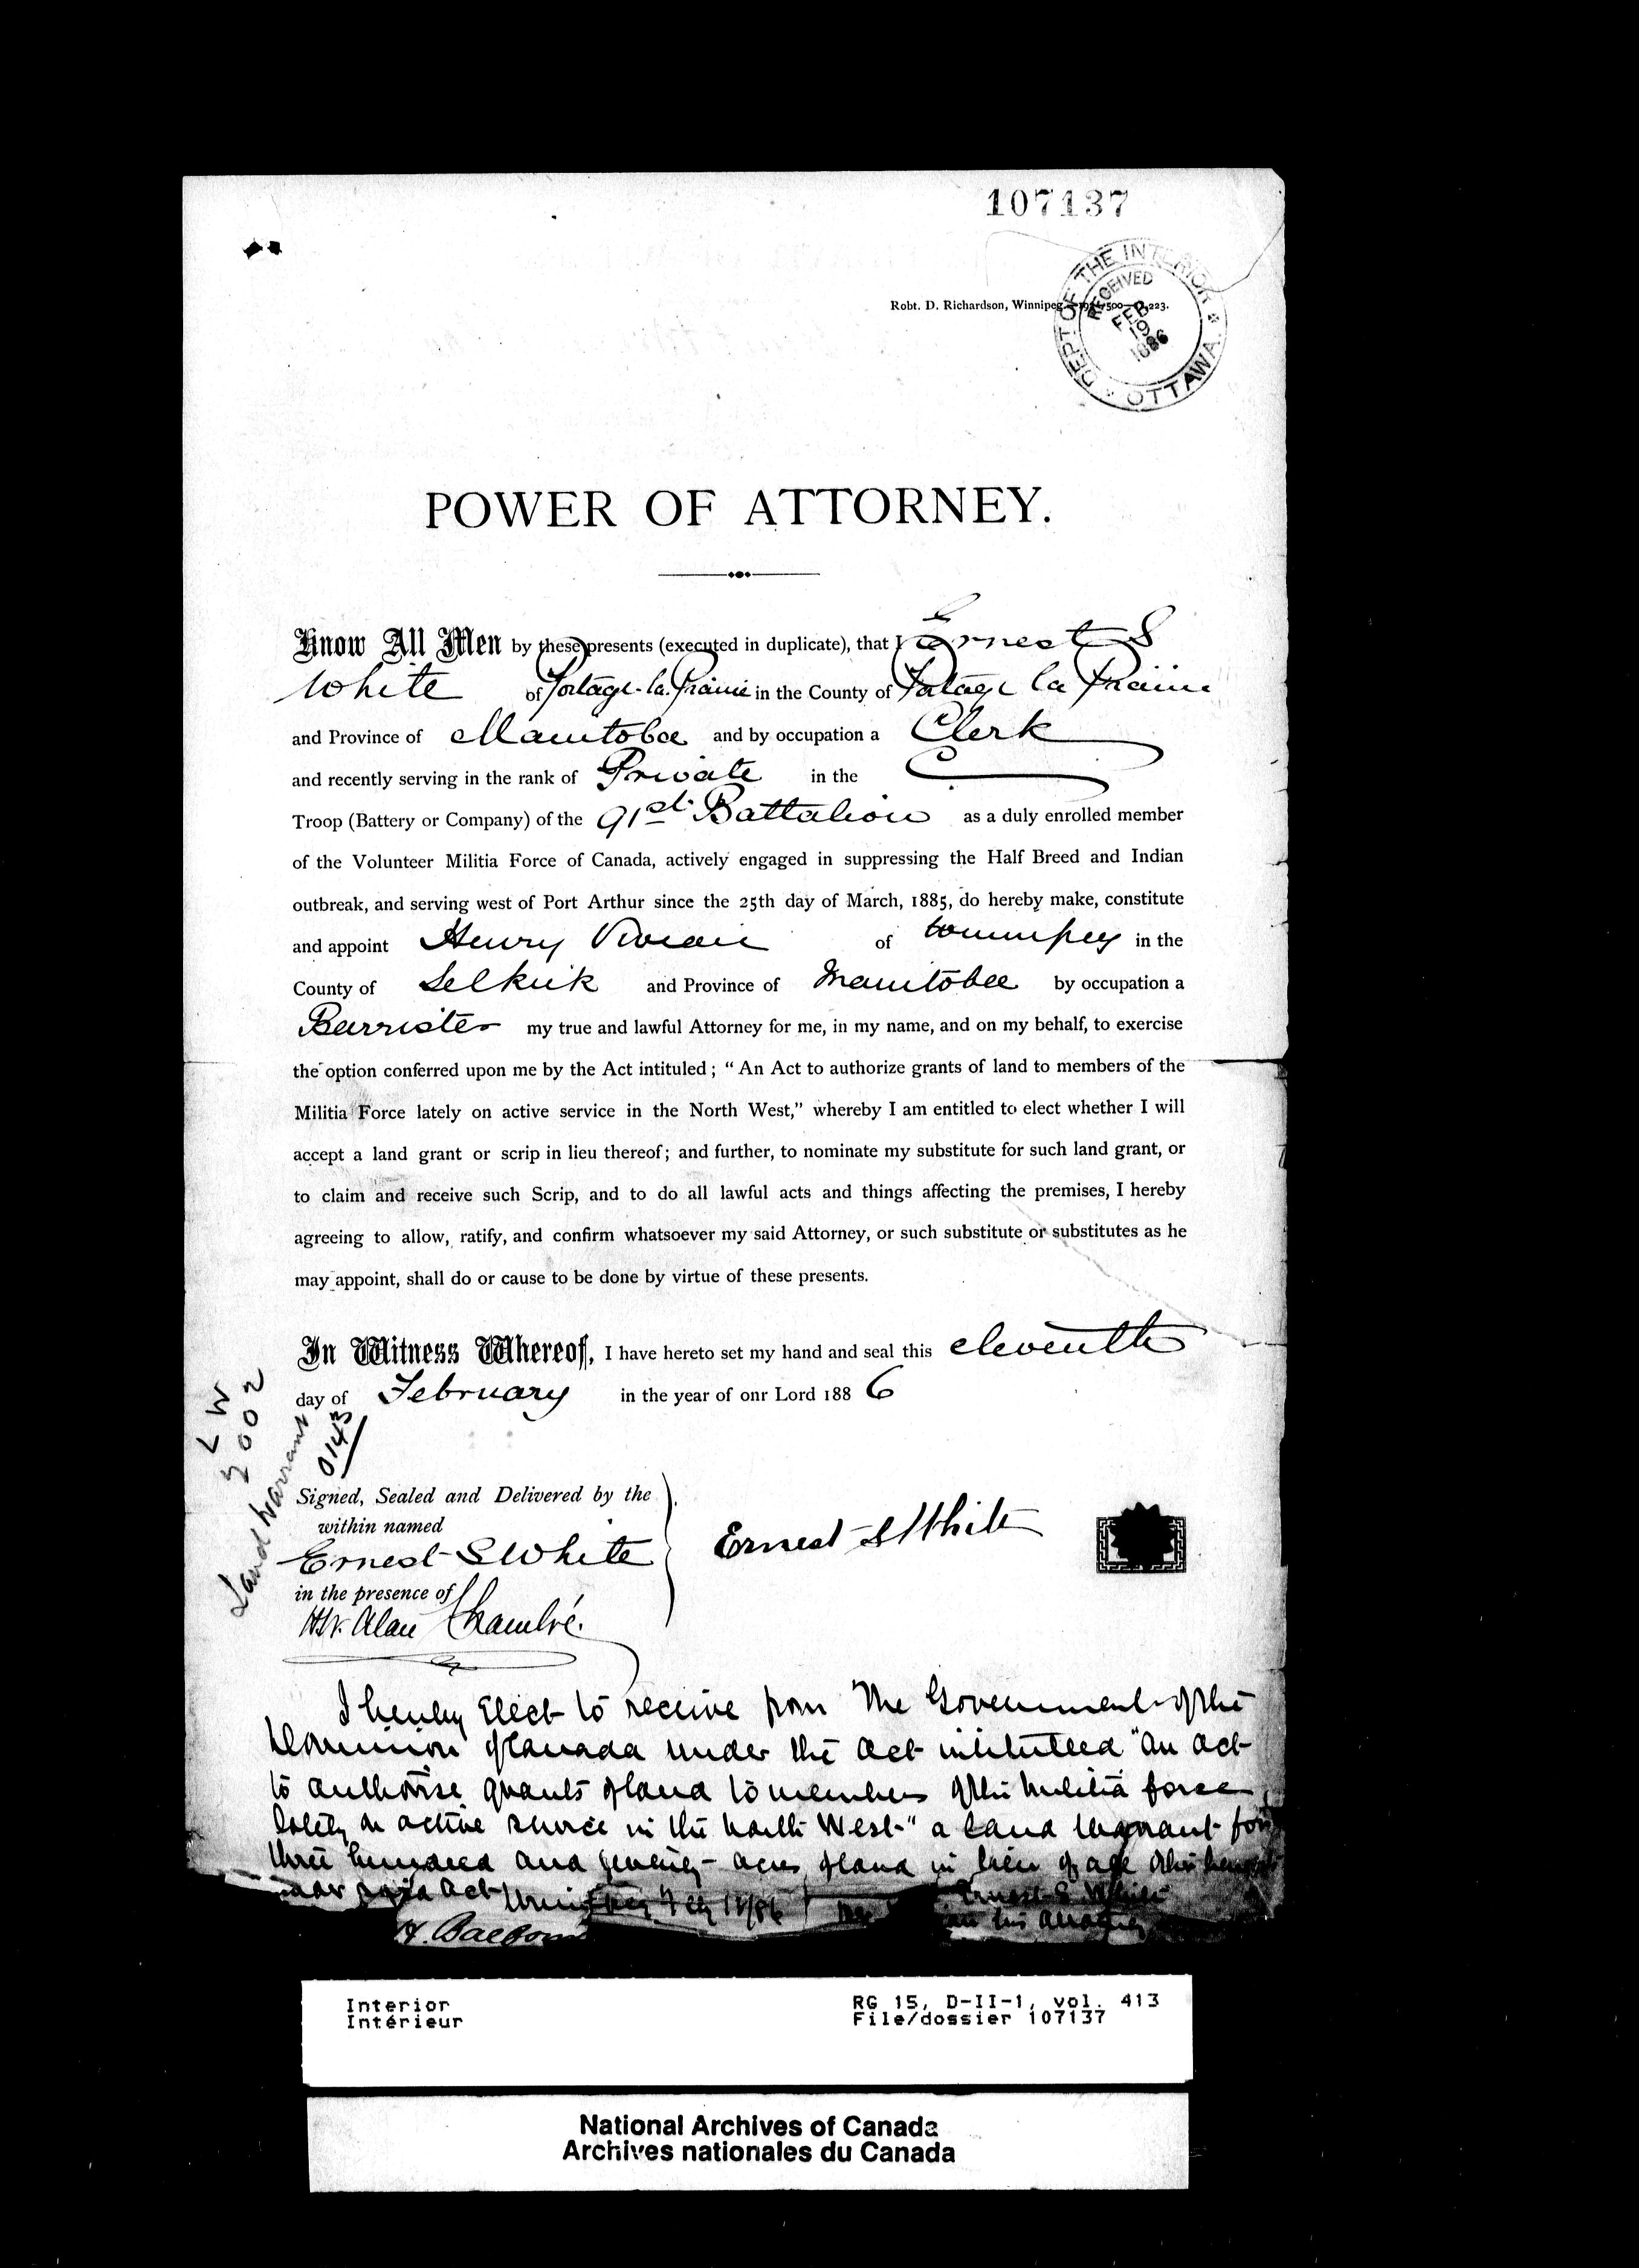 107137
DEPT OF THE INTERIOR
RECEIVED
FEB
19
1886
OTTAWA
Robt. D. Richardson, Winnipeg
POWER OF ATTORNEY.
Know All Men by these presents (executed in duplicate), that I Ernest S
White of Portage-la-Prairie in the County of Portage la Prairie
and Province of Manitoba and by occupation a Clerk
and recently serving in the rank of Private in the
Troop (Battery or Company) of the 91st Battalion as a duly enrolled member
of the Volunteer Militia Force of Canada, actively engaged in suppressing the Half Breed and Indian
outbreak, and serving west of Port Arthur since the 25th day of March, 1885, do hereby make, constitute
and appoint Henry Vivian of Winnipeg in the
County of Selkirk and Province of Manitoba by occupation a
Barrister my true and lawful Attorney for me, in my name, and on my behalf, to exercise
the option conferred upon me by the Act intituled; "An Act to authorize grants of land to members of the
Militia Force lately on active service in the North West," whereby I am entitled to elect whether I will
accept a land grant or scrip in lieu thereof; and further, to nominate my substitute for such land grant, or
to claim and receive such Scrip, and to do all lawful acts and things affecting the premises, I hereby
agreeing to allow, ratify, and confirm whatsoever my said Attorney, or such substitute or substitutes as he
may appoint, shall do or cause to be done by virtue of these presents.
In Witness Whereof, I have hereto set my hand and seal this eleventh
day of February in the year of onr Lord 1886
Land Warrant
0143
Signed, Sealed and Delivered by the
within named
Ernest S White
Ernest S White
in the presence of
Alan Chambré.
I hereby Elect to receive from The Government of the
Dominion of Canada under the Act intituled "An act
to authorise grants of land to members of the Militia force
lately on active service in the North West" a land warrant for
three hundred and twenty acres of land in lieu of
said Act
Ernest S White
his attorney
Interior
Intérieur
RG 15, D-II-1, vol. 413
File/dossier 107137
National Archives of Canada
Archives nationales du Canada